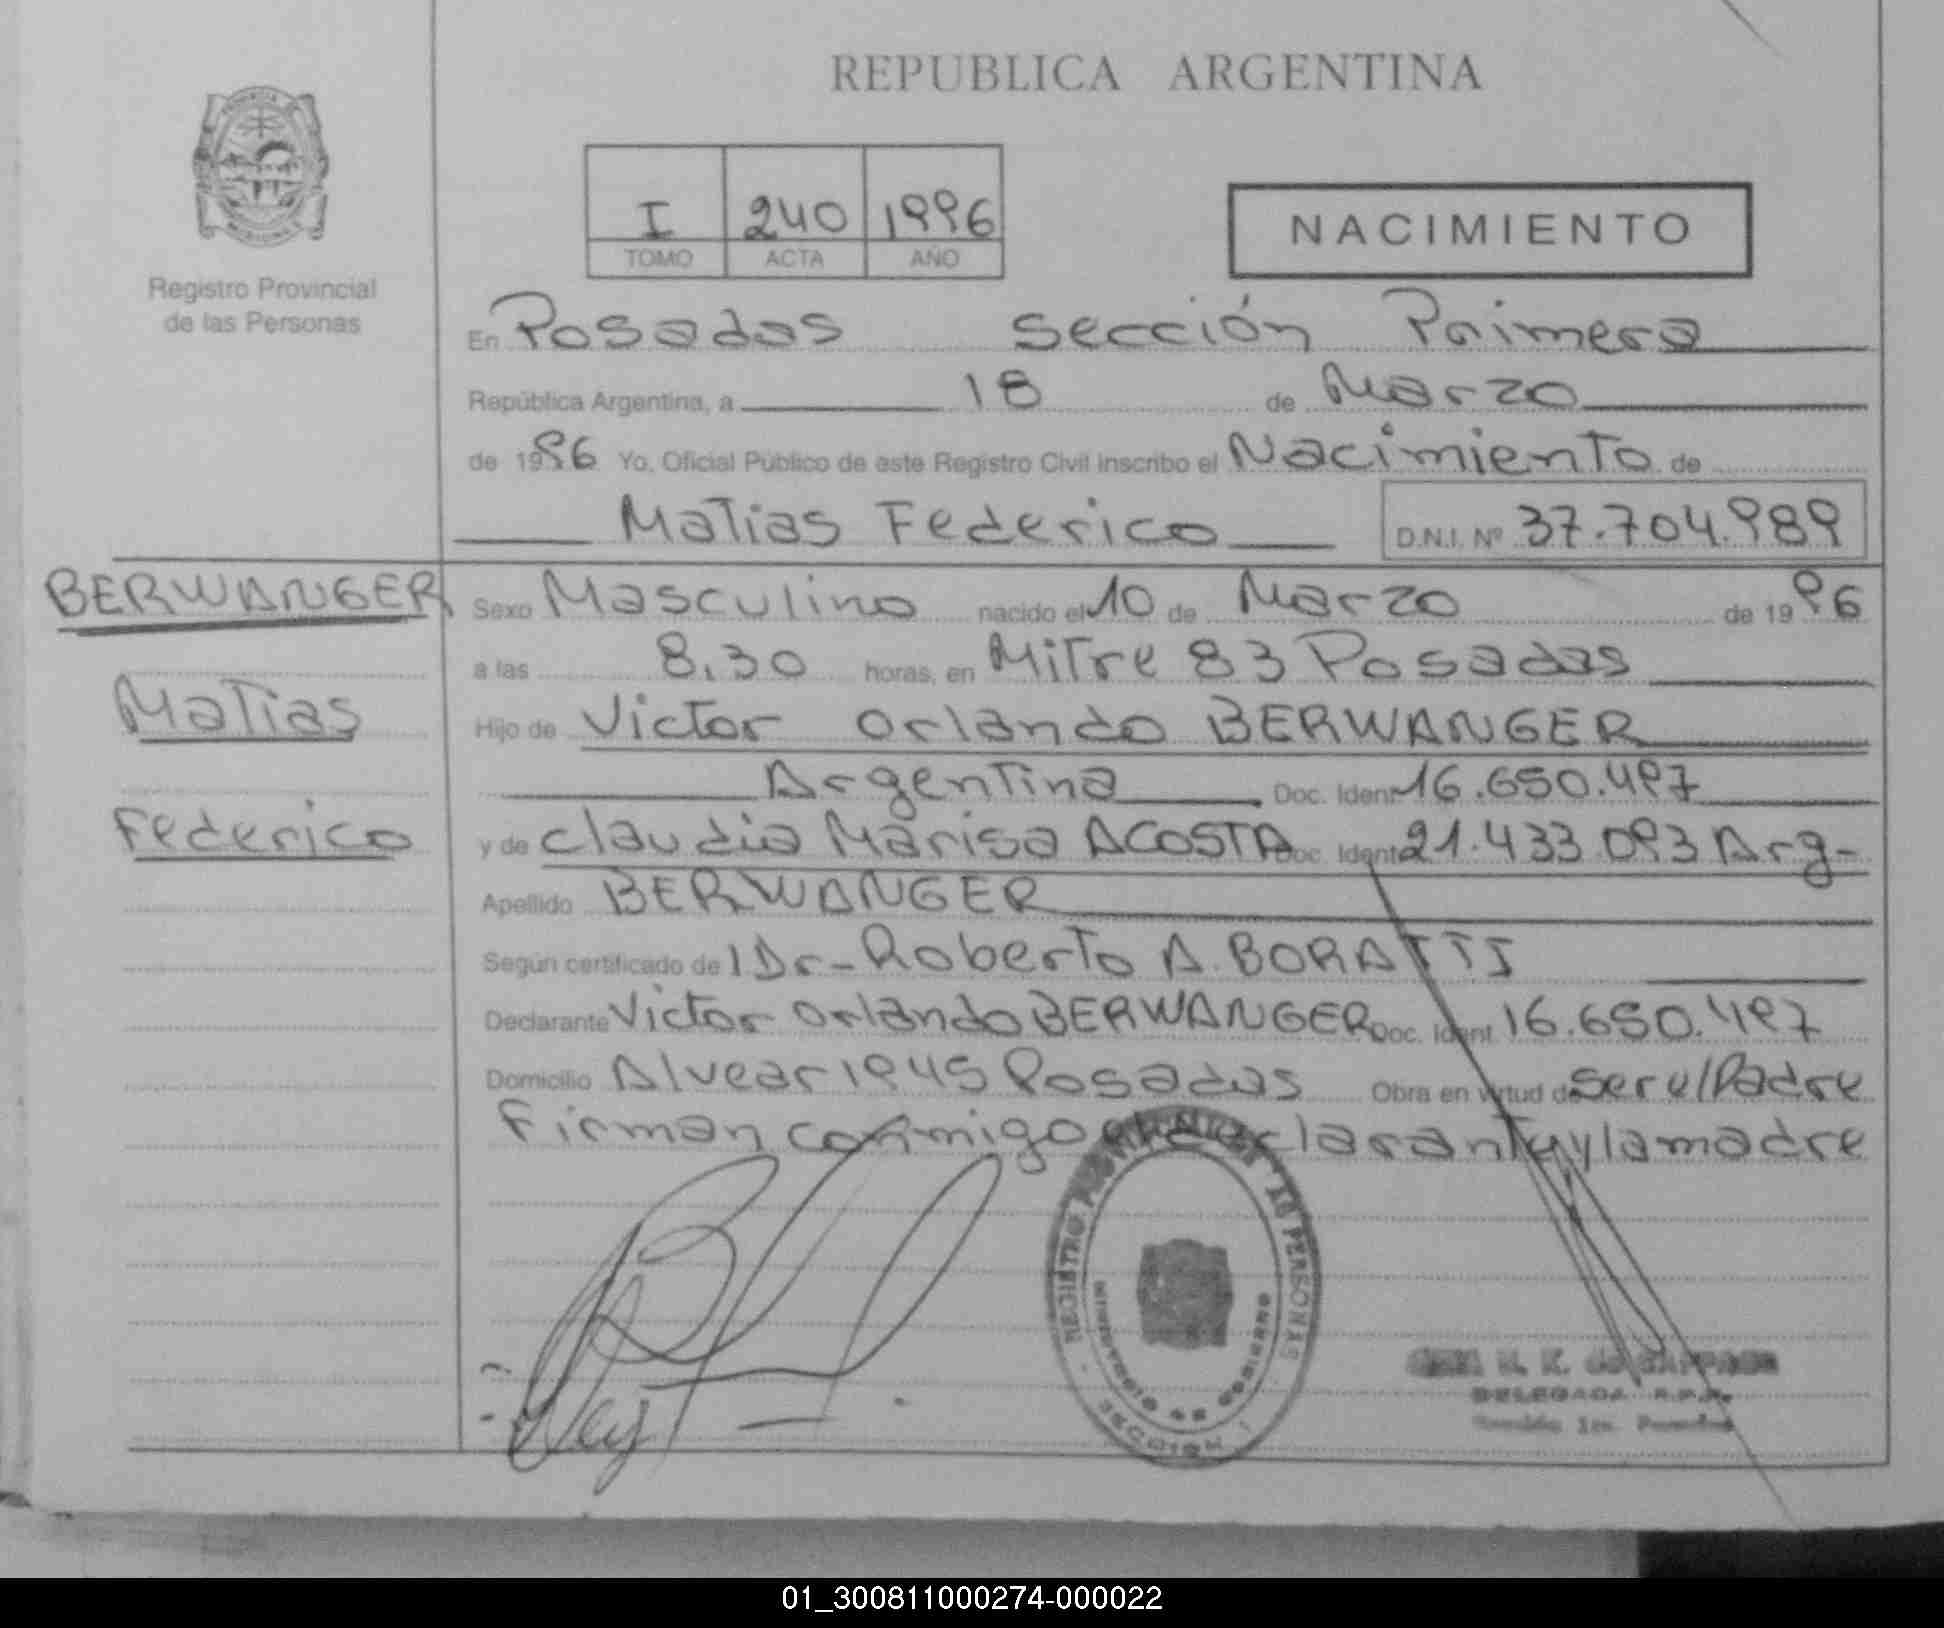 REPUBLICA ARGENTINA
PROVINCIA
MISIONES
Registro Provincial
de las Personas
I 240 1996
TOMO ACTA AÑO
NACIMIENTO
En Posadas Sección Primera
República Argentina, a 18 de Marzo
de 1996 Yo, Oficial Público de este Registro Civil inscribo el Nacimiento de
Matias Federico D.N.I. Nº 37.704.989
BERWANGER
Matias
Federico
Sexo Masculino nacido el 10 de Marzo de 1996
a las 8,30 horas, en Mitre 83 Posadas
Hijo de Victor Orlando BERWANGER
Argentina Doc. Ident 16.650.497
y de Claudia Marisa ACOSTA Doc. Ident 21.433.093 Arg-
Apellido BERWANGER
Según certificado de l Dr- Roberto A. BORATTI
Declarante Victor Orlando BERWANGER Doc. Ident. 16.650.497
Domicilio Alvear 1945 Posadas Obra en virtud de ser el Padre
Firman conmigo el declarante y la madre
REGISTRO PROVINCIAL DE LAS PERSONAS
MINISTERIO DE GOBIERNO
SECCION 1
DELEGADA R.P.P.
Sección 1ra. Posadas
01_300811000274-000022